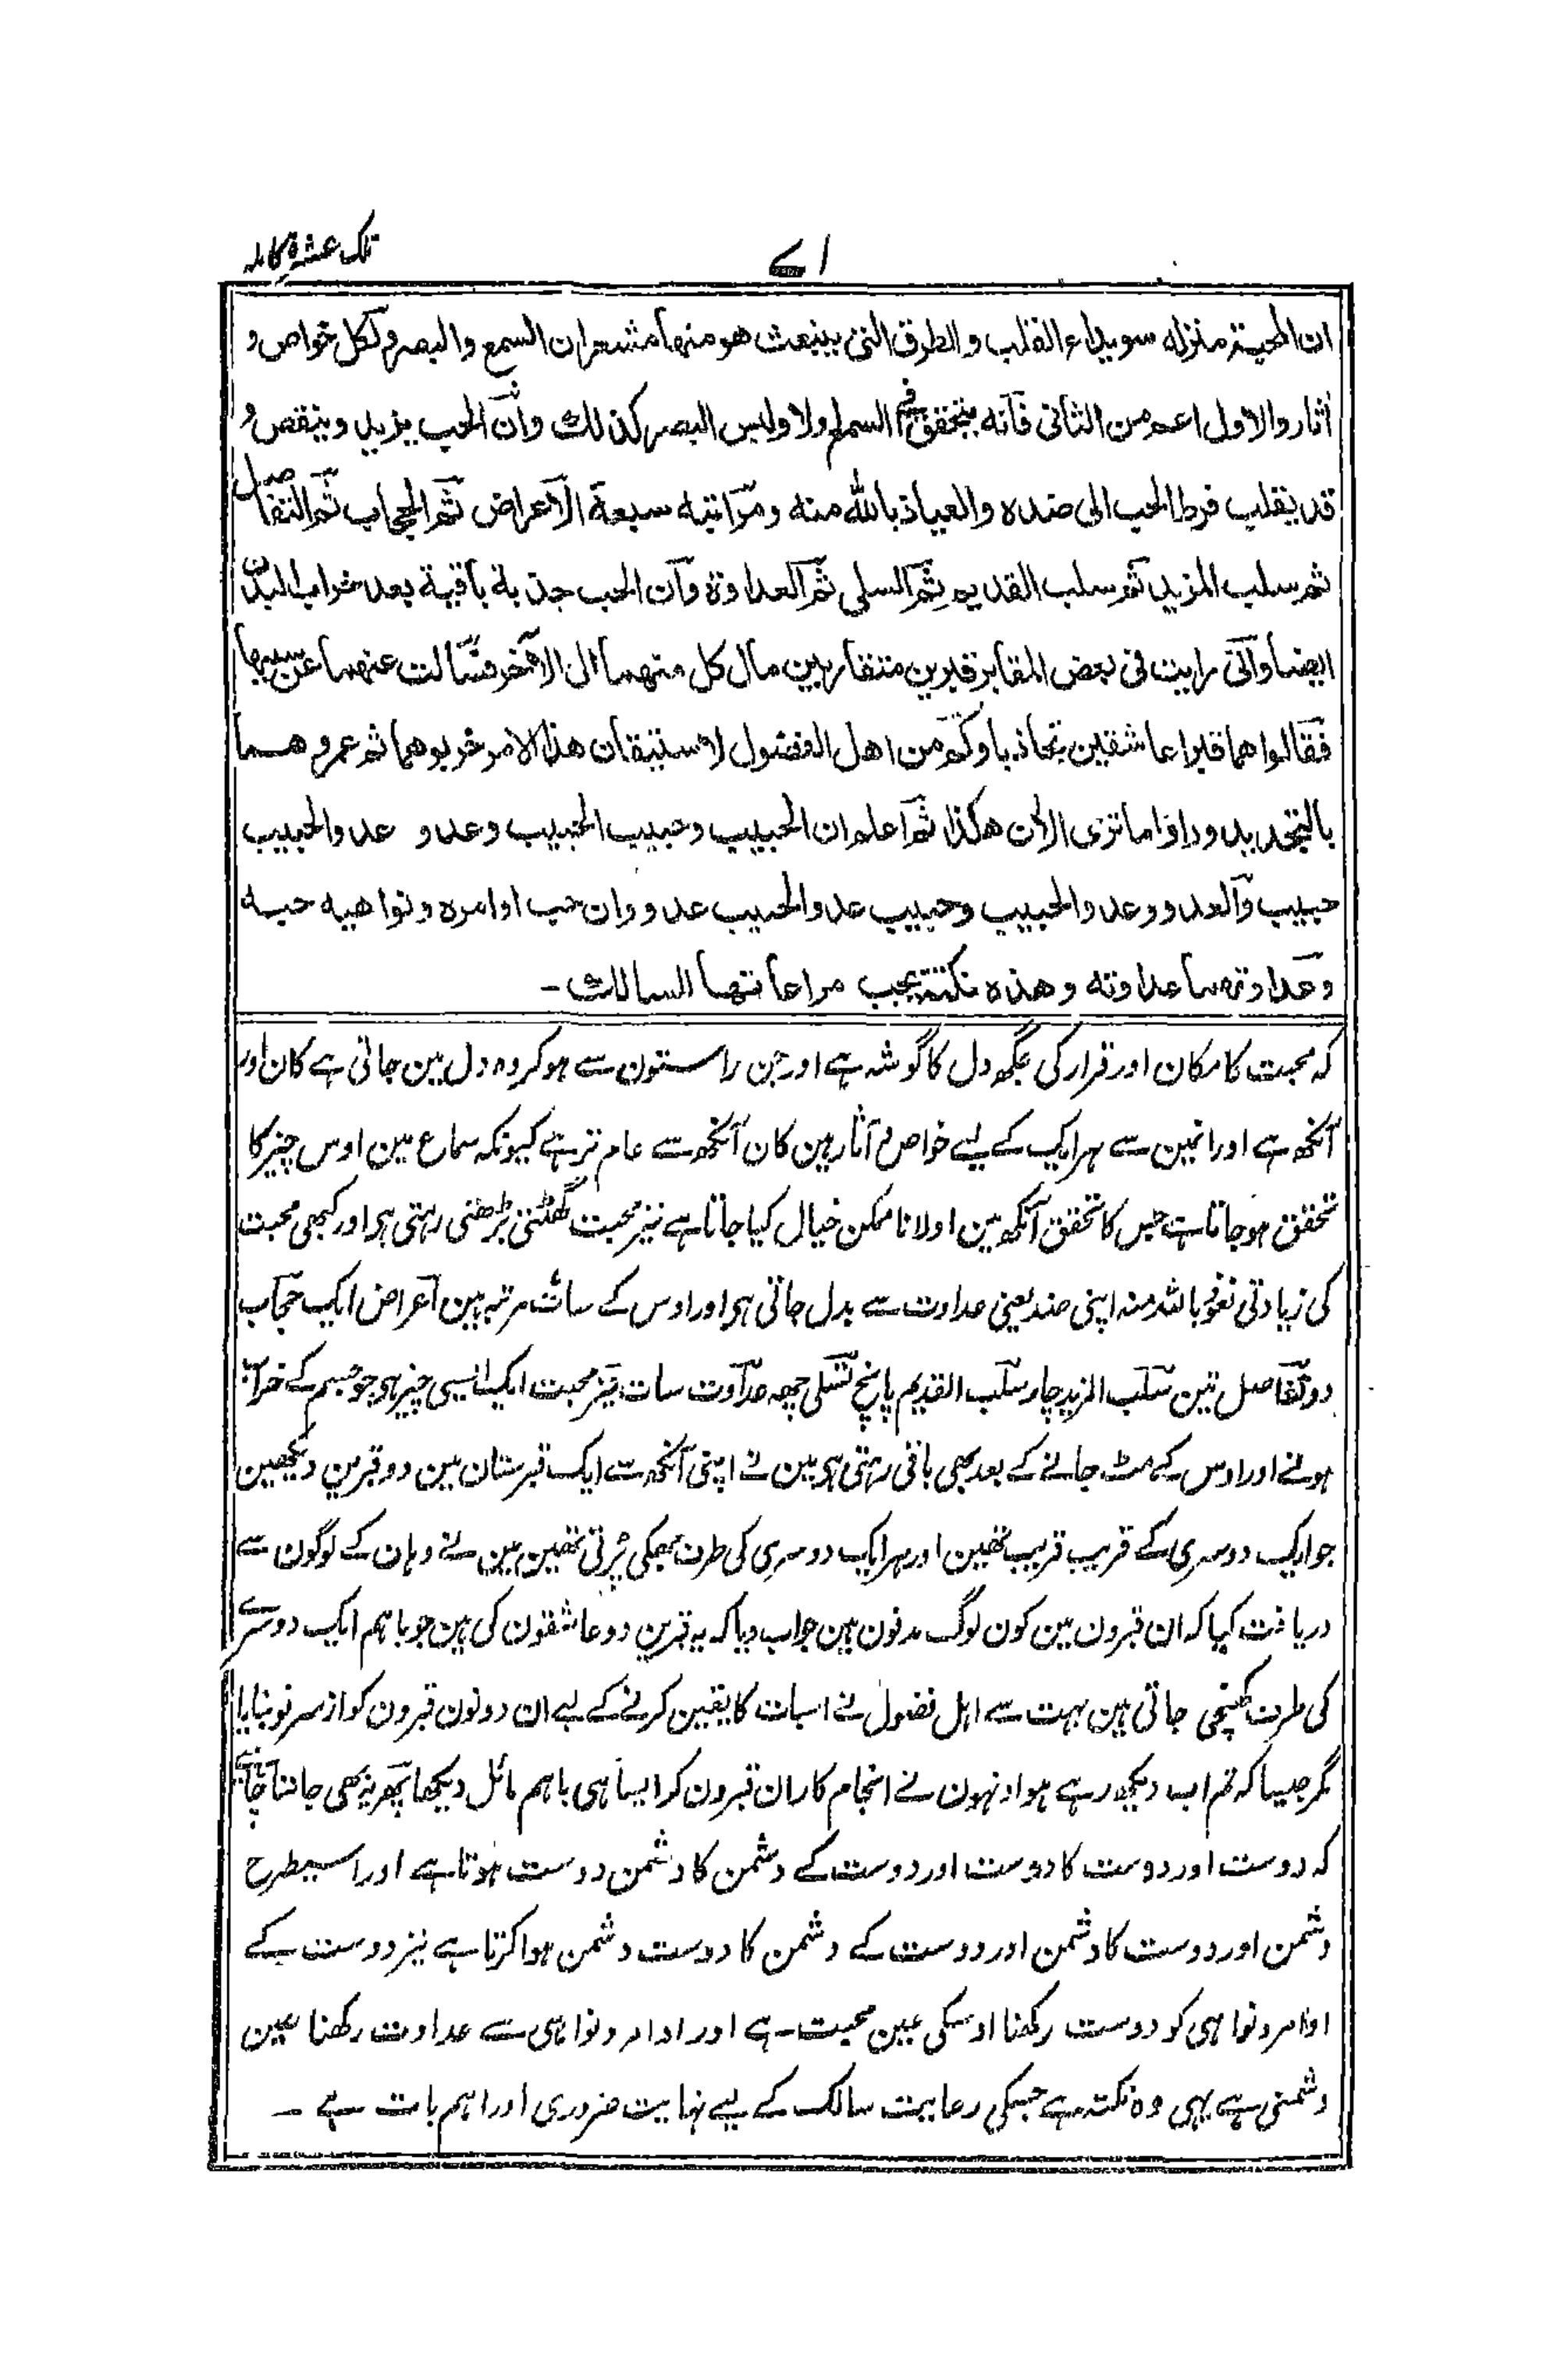 تلک عشرۃ کاملہ
۷۱
ان المحبة منزله سويداء القلب والطرق التى ينبعث هو منها مشعران السمع والبصر ولكل خواص و
اثار والاول اعم من الثانى فانه يتحقق فى السماع ولا وليس البصر كذلك وان الحب يزيد وينقص و
قد يقلب فرط الحب الى ضده والعياذ بالله منه ومراتبه سبعة الاعراض ثم الحجاب ثم التفاصل
ثم سلب المزيد ثم سلب القديم ثم السلى ثم العداوة وان الحب جذبة باقية بعد خراب البدن
ايضا وانى رايت فى بعض المقابر قبرين متقاربين مال كل منهما الى الاخر فسالت عنهما عن سببها
فقالوا هما قبرا عاشقين تجاذبا وكم من اهل الفضول لاستيقان هذا الامر خربوهما ثم عمروهما
بالتجديد وراوا ما ترى الان هكذا ثم اعلم ان الحبيب وحبيب الحبيب وعدو عدو الحبيب
حبيب والعدو وعدو الحبيب وحبيب عدو الحبيب عدو وان حب اوامره ونواهيه حبه
وعداوتهما عداوته وهذه نكتة يجب مراعاتها السالك -
کہ محبت کا مکان اور قرار کی جگھ دل کا گوشہ ہے اور جن راستون سے ہو کر وہ دل مین جاتی ہے کان اور
آنکھ ہے اور انمین سے ہر ایک کے لیے خواص و آثار ہین کان آنکھ سے عام تر ہے کیونکہ سماع مین اوس چیز کا
تحقق ہو جاتا ہے جس کا تحقق آنکھ مین اولا ناممکن خیال کیا جاتا ہے نیز محبت گھٹتی بڑھتی رہتی ہی اور کبھی محبت
کی زیادتی نعوذ باللہ منہ اپنی ضد یعنی عداوت سے بدل جاتی ہی اور اوس کے سات مرتبہ ہین اعراض ایک حجاب
دو تفاصل تین سلب المزید چار سلب القدیم پانچ تسلی چھہ عداوت سات نیز محبت ایک ایسی چیز ہی جو جسم کے خراب
ہونے اور اوس کے مٹ جانے کے بعد بھی باقی رہتی ہی مین نے اپنی آنکھ سے ایک قبرستان مین دو قبرین دیکھین
جو ایک دوسری کے قریب قریب تھین اور ہر ایک دوسری کی طرف جھکی پڑتی تھین مین نے وہان کے لوگون سے
دریافت کیا کہ ان قبرون مین کون لوگ مدفون ہین جواب دیا کہ یہ قبرین دو عاشقون کی ہین جو باہم ایک دوسرے
کی طرف کھنچی جاتی ہین بہت سے اہل فضول نے اسبات کا یقین کرنے کے لیے ان دونون قبرون کو از سر نو بنایا
مگر جیسا کہ تم اب دیکھ رہے ہو اونہون نے انجام کار ان قبرون کو ایسا ہی باہم مائل دیکھا پھر یہ بھی جاننا چاہیے
کہ دوست اور دوست کا دوست اور دوست کے دشمن کا دشمن دوست ہوتا ہے اور اسیطرح
دشمن اور دوست کا دشمن اور دوست کے دشمن کا دوست دشمن ہوا کرتا ہے نیز دوست کے
اوامر و نواہی کو دوست رکھنا اوسکی عین محبت ہے اور اوامر و نواہی سے عداوت رکھنا عین
دشمنی ہے یہی وہ نکتہ ہے جسکی رعایت سالک کے لیے نہایت ضروری اور اہم بات ہے -